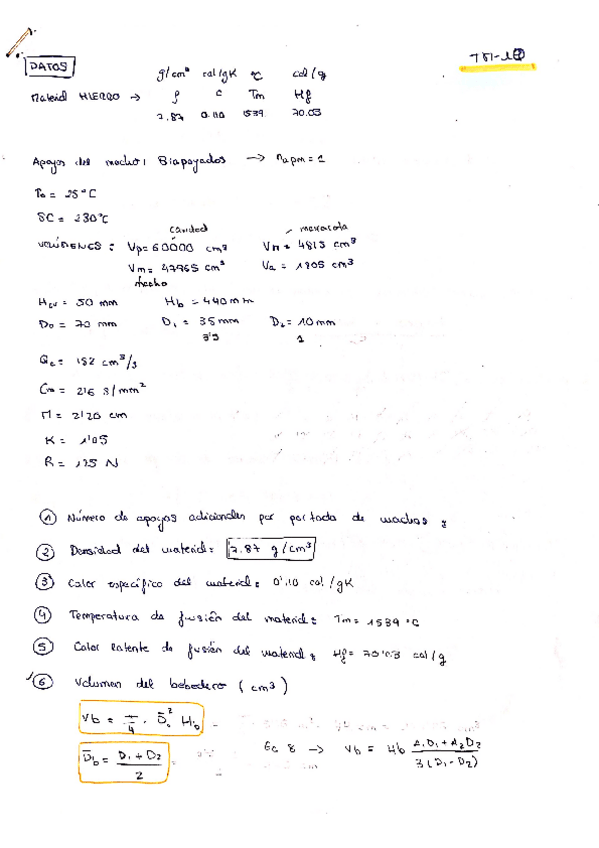 DATOS
g/cm³ cal/gK ºC cal/g
Material HIERRO → ρ c Tm Hf
7.87 0.110 1539 70.03
Apoyos del macho: Biapoyados → napm = 1
To = 25ºC
SC = 230ºC
cavidad mazarota
VOLÚMENES: Vp = 60000 cm³ Vn = 4813 cm³
Vm = 47965 cm³ Va = 1805 cm³
Macho
Hcv = 50 mm Hb = 440 mm
Do = 70 mm D1 = 35 mm D2 = 10 mm
3'5 1
Qc = 182 cm³/s
Cm = 2'6 s/mm²
M = 2'20 cm
K = 1'05
R = 135 N
① Número de apoyos adicionales por portada de machos
② Densidad del material: 7.87 g/cm³
③ Calor específico del material: 0'110 cal/gK
④ Temperatura de fusión del material: Tm = 1539 ºC
⑤ Calor latente de fusión del material: Hf = 70'03 cal/g
⑥ Volumen del bebedero (cm³)
Vb = π/4 · D̄b² Hb
D̄b = (D1 + D2)/2
Ec 8 → Vb = Hb (A1D1 + A2D2)/(3(D1 - D2))